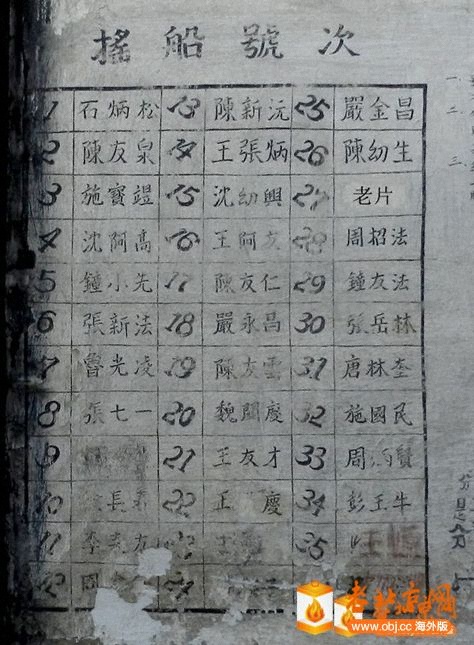 搖船號次
1 石炳松 13 陳新沅 25 嚴金昌
2 陳友泉 14 王張炳 26 陳幼生
3 施寳 15 沈幼興 27 老片
4 沈阿高 16 王阿 28 周招法
5 鐘小先 17 陳友仁 29 鐘友法
6 張新法 18 嚴永昌 30 張岳林
7 魯光凌 19 陳友雲 31 唐林奎
8 張七一 20 魏開慶 32 施國民
9 21 王友才 33 周 賢
10 長 22 王 慶 34 彭玉牛
11 李 友 25
12 周
一
二
三
www.obj.cc 海外版